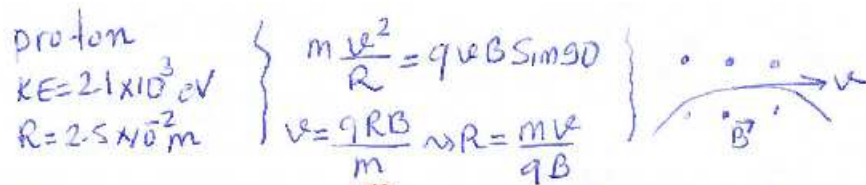 proton
KE=21×10³ eV
R=2.5×10⁻² m
m v²/R = qvB Sin90
v = qRB/m ⇝ R = mv/qB
v
B⃗